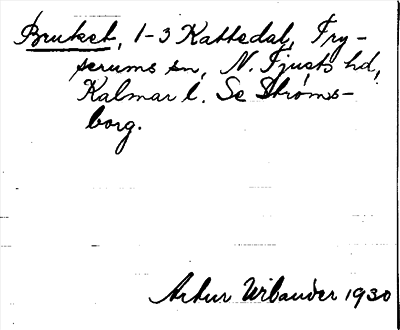 Bruket, 1-3 Kattedal, Try-
serums sn, N. Tjusts hd,
Kalmar l. Se Ströms-
borg.
Artur Wibander 1930